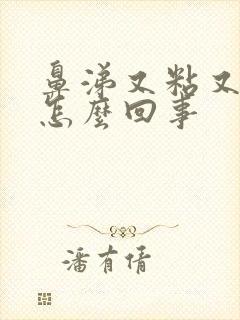 鼻涕又粘又
怎麼回事
潘有倩